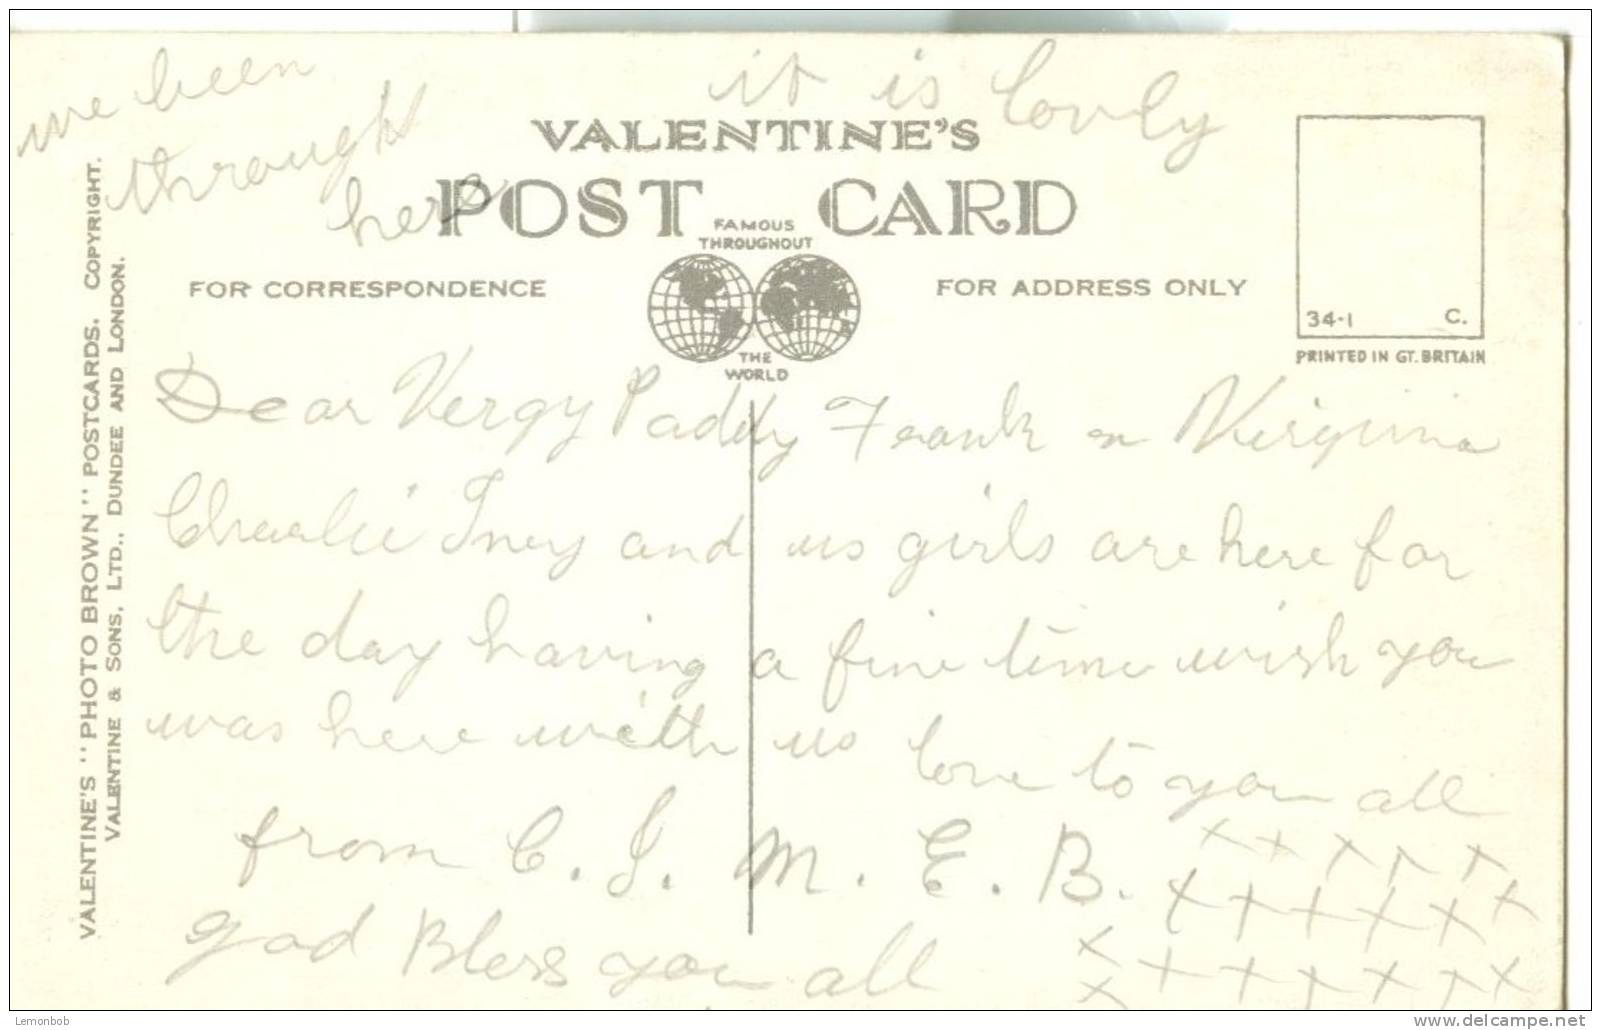 we been
through
here
it is lovly
VALENTINE'S
POST CARD
FAMOUS
THROUGHOUT
THE
WORLD
FOR CORRESPONDENCE
FOR ADDRESS ONLY
34-1 C.
PRINTED IN GT. BRITAIN
VALENTINE'S "PHOTO BROWN" POSTCARDS. COPYRIGHT.
VALENTINE & SONS, LTD., DUNDEE AND LONDON.
Dear Vergy Paddy Frank Virginia
Charlie and us girls are here for
the day having a fine time wish you
was here with us love to you all
from C. J. M. E. B.
god Bless you all
Lemonbob
www.delcampe.net